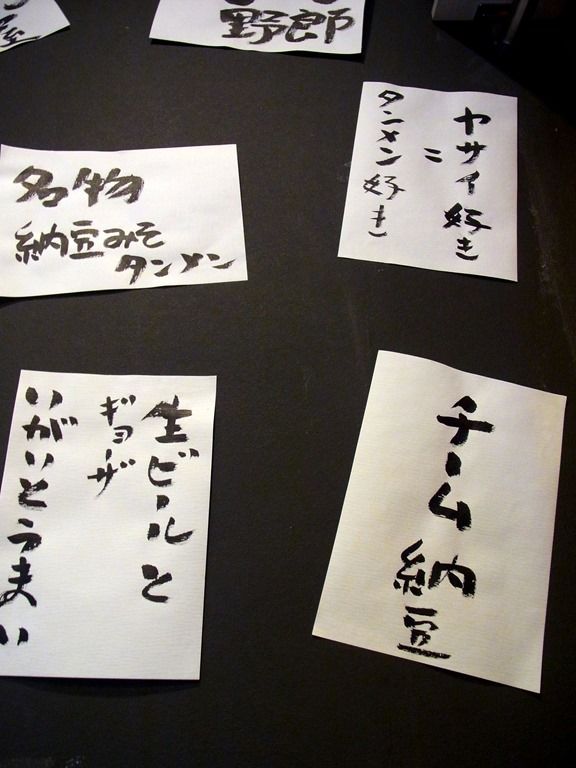 野郎
ヤサイ好き
ニ
タンメン好き
名物
納豆みそ
タンメン
生ビールと
ギョーザ
いがいとうまい
チーム納豆